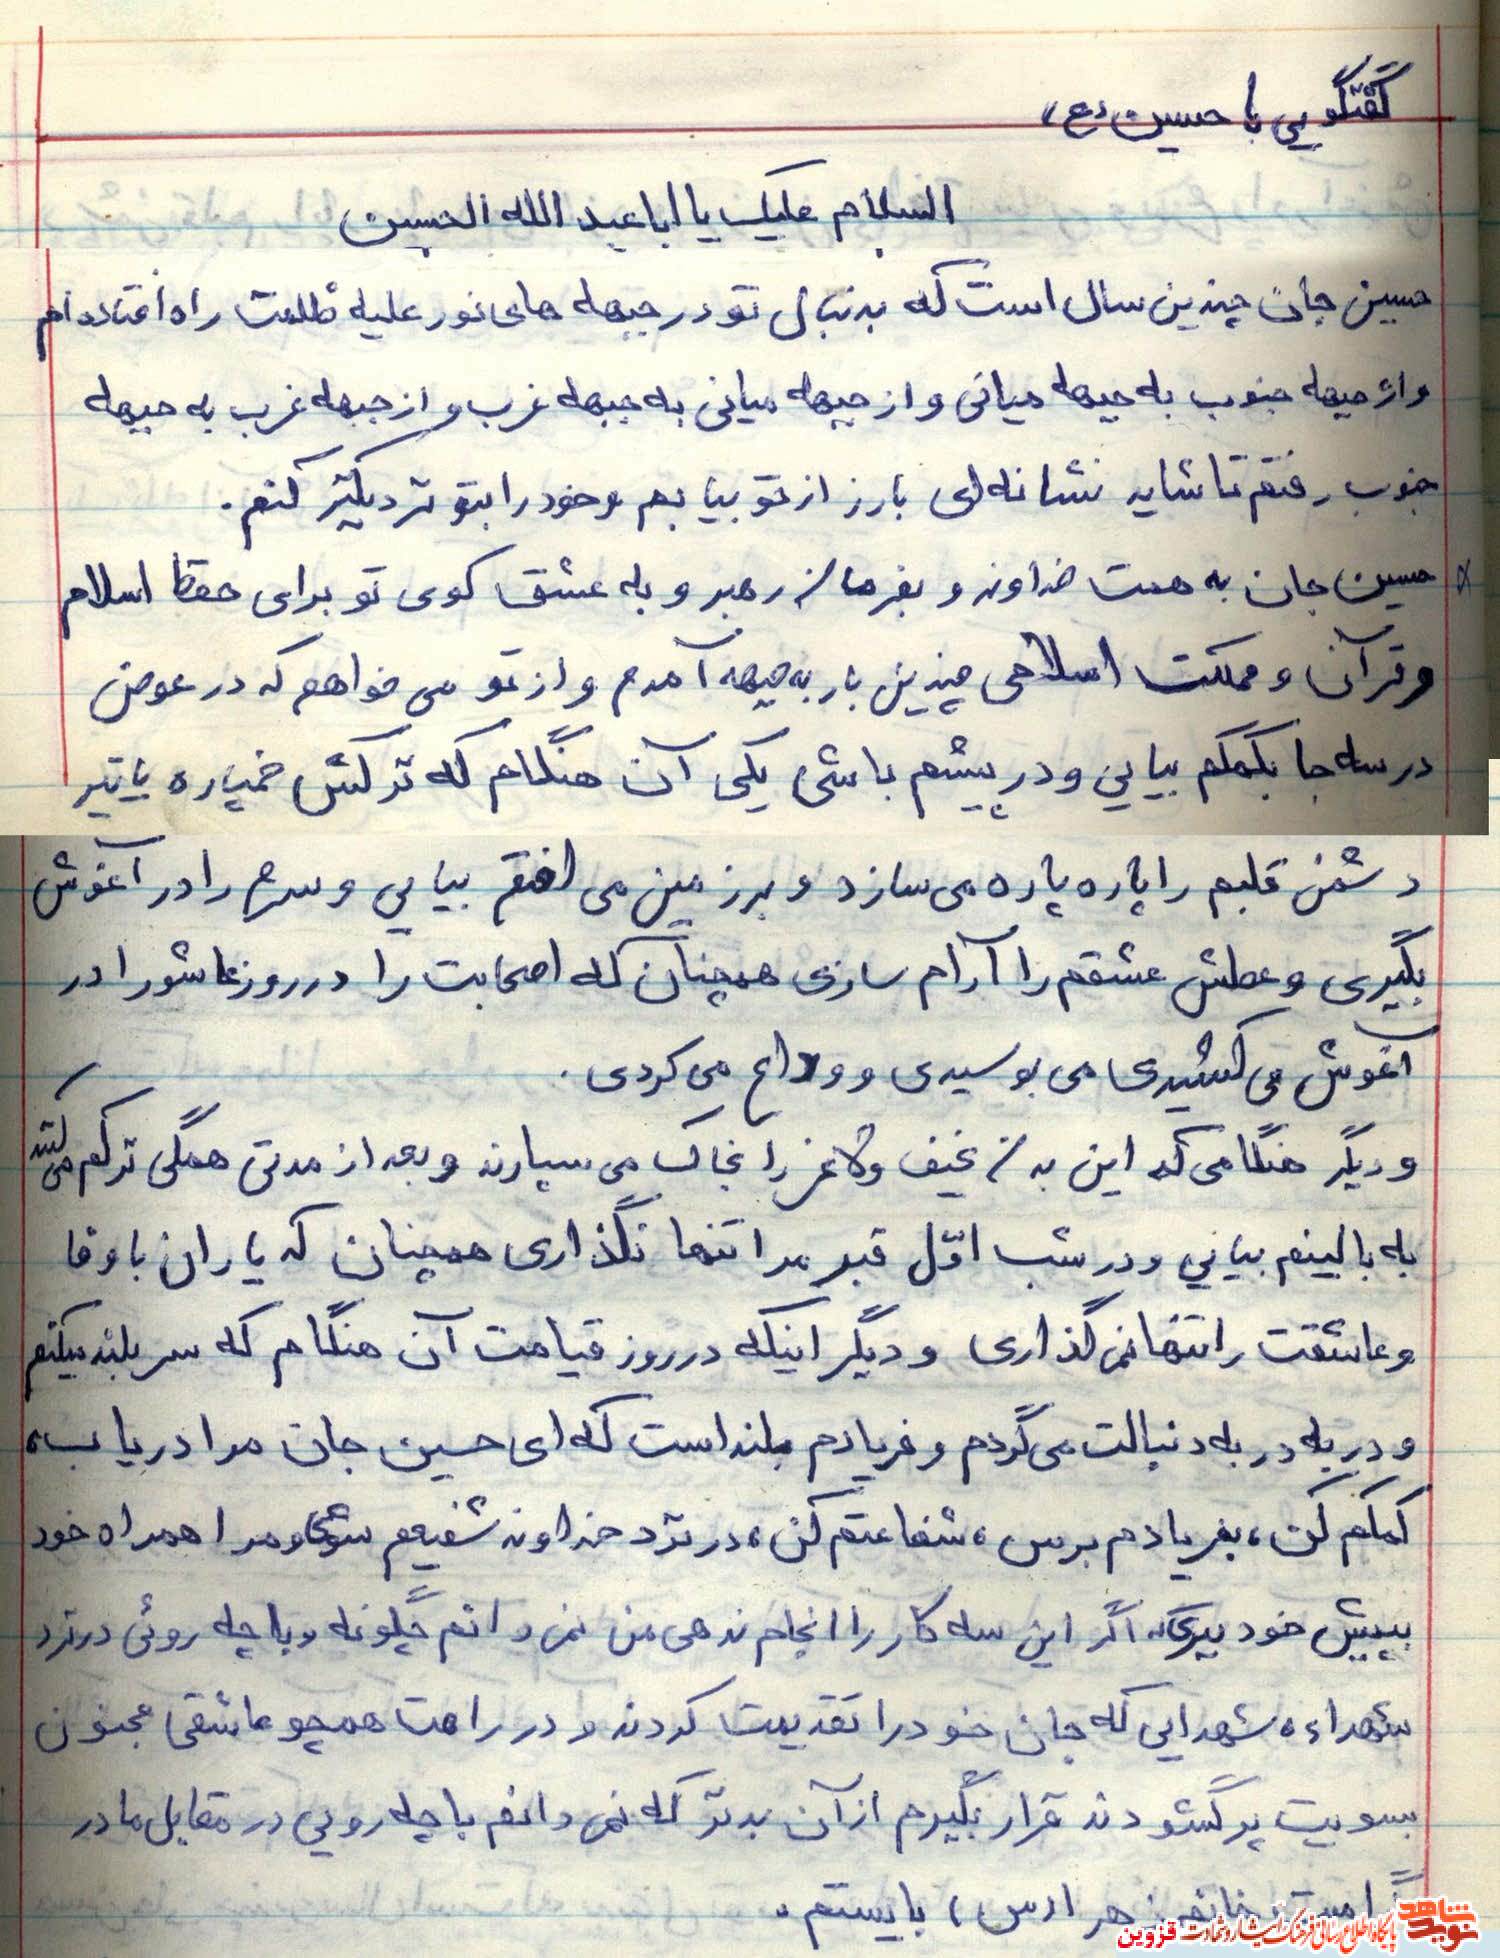 گفتگویی با حسین (ع)
السلام علیک یا ابا عبد الله الحسین
حسین جان چندین سال است که بدنبال تو در جبهه های نور علیه ظلمت راه افتاده ام
و از جبهه جنوب به جبهه میانی و از جبهه میانی به جبهه غرب و از جبهه غرب به جبهه
جنوب رفتم تا شاید نشانه ای بارز از تو بیابم و خود را بتو نزدیکتر کنم.
حسین جان به همت خداوند و بفرمان رهبر و به عشق کوی تو برای حفظ اسلام
و قرآن و مملکت اسلامی چندین بار به جبهه آمدم و از تو می خواهم که در عوض
در سه جا بکمکم بیایی و در پیشم باشی یکی آن هنگام که ترکش خمپاره یا تیر
دشمن قلبم را پاره پاره می سازد و بر زمین می افتم بیایی و سرم را در آغوش
بگیری و عطش عشقم را آرام سازی همچنان که اصحابت را در روز عاشورا در
آغوش می کشیدی می بوسیدی و وداع می کردی.
و دیگر هنگامی که این بدن نحیف و لاغر را بخاک می سپارند و بعد از مدتی همگی ترکم می کنند
به بالینم بیایی و در شب اوّل قبر مرا تنها نگذاری همچنان که یاران باوفا
و عاشقت را تنها نمی گذاری و دیگر اینکه در روز قیامت آن هنگام که سر بلند میکنم
و در به در به دنبالت می گردم و فریادم بلند است که ای حسین جان مرا دریاب،
کمکم کن، بفریادم برس، شفاعتم کن، در نزد خداوند شفیعم شوی و مرا همراه خود
بپیش خود ببری، اگر این سه کار را انجام ندهی من نمی دانم چگونه و با چه روئی در نزد
شهداء، شهدایی که جان خود را تقدیمت کردند و در راهت همچو عاشقی مجنون
بسویت پر گشودند قرار بگیرم از آن بدتر که نمی دانم با چه رویی در مقابل مادر
گرامیت خانم زهرا (س) بایستم.
نوید شاهد
پایگاه اطلاع رسانی فرهنگ ایثار و شهادت قزوین